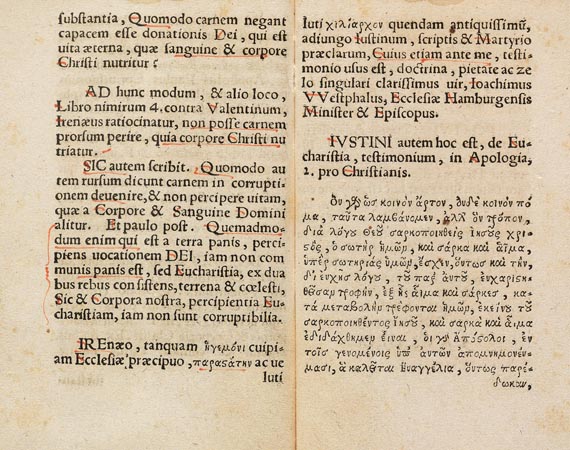 substantia, Quomodo carnem negant
capacem esse donationis Dei, qui est
uita æterna, quæ sanguine & corpore
Christi nutritur?
AD hunc modum, & alio loco,
Libro nimirum 4. contra Valentinum,
Irenæus ratiocinatur, non posse carnem
prorsum perire, quia corpore Christi nu
triatur.
SIC autem scribit. Quomodo au
tem rursum dicunt carnem in corrupti
onem deuenire, & non percipere uitam,
quæ a Corpore & Sanguine Domini
alitur. Et paulo post. Quemadmo-
dum enim qui est a terra panis, perci-
piens uocationem DEI, iam non com
munis panis est, sed Eucharistia, ex dua
bus rebus consistens, terrena & cœlesti,
Sic & Corpora nostra, percipientia Eu-
charistiam, iam non sunt corruptibilia.
IRENæo, tanquam ἡγεμόνι cuipi-
am Ecclesiæ præcipuo, παραϛάτην ac ue
luti
luti χιλίαρχον quendam antiquissimũ,
adiungo Iustinum, scriptis & Martyrio
præclarum, Cuius etiam ante me, testi-
monio usus est, doctrina, pietate ac ze
lo singulari clarissimus uir, Ioachimus
VVestphalus, Ecclesiæ Hamburgensis
Minister & Episcopus.
IVSTINI autem hoc est, de Eu-
charistia, testimonium, in Apologia,
2. pro Christianis.
Ὀυ γὰρ ὡς κοινὸν ἄρτον, ὀυδὲ κοινὸν πό
μα, ταῦτα λαμβάνομεν, ἀλλ᾽ ὃν τρόπον,
διὰ λόγου Θεοῦ σαρκοποιηθεὶς Ἰησοῦς χρι
ϛὸς, ὁ σωτὴρ ἡμῶν, καὶ σάρκα καὶ ἇιμα,
ὑπὲρ σωτηρίας ἡμῶν, ἔσχεν, ὅυτως καὶ τὴν,
δι᾽ ἐυχῆς λόγου, τοῦ παρ᾽ ἀυτοῦ, ἐυχαριϛη
θεῖσαν τροφὴν, ἐξ ἧς ἇιμα καὶ σάρκες, κα-
τὰ μεταβολὴν τρέφονται ἡμῶν, ἐκείνου τοῦ
σαρκοποιηθέντος Ἰησοῦ, καὶ σάρκα καὶ ἇιμα
ἐδιδάχθημεν ἐιναι, ὁι γὰρ Ἀπόϛολοι, ἐν
τοῖς γενομένοις ὑπ᾽ ἀυτῶν ἀπομνημονέυ-
μασι, ἃ καλεῖται Ἐυαγγέλια, ὅυτως παρέ-
δωκαν,